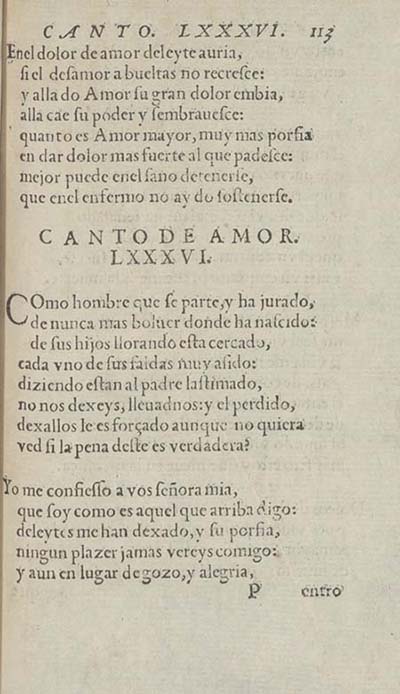 CANTO. LXXXVI. 113
Enel dolor de amor deleyte auria,
si el desamor a bueltas no recresce:
y alla do Amor su gran dolor embia,
alla cae su poder y sembrauesce:
quanto es Amor mayor, muy mas porfia
en dar dolor mas fuerte al que padesce:
mejor puede enel sano detenerse,
que enel enfermo no ay do sostenerse.
CANTO DE AMOR.
LXXXVI.
COmo hombre que se parte, y ha jurado,
de nunca mas boluer donde ha nascido:
de sus hijos llorando esta cercado,
cada vno de sus faldas muy asido:
diziendo estan al padre lastimado,
no nos dexeys, lleuadnos: y el perdido,
dexallos le es forçado aunque no quiera
ved si la pena deste es verdadera?
Yo me confiesso a vos señora mia,
que soy como es aquel que arriba digo:
deleytes me han dexado, y su porfia,
ningun plazer jamas vereys comigo:
y aun en lugar de gozo, y alegria,
P entro